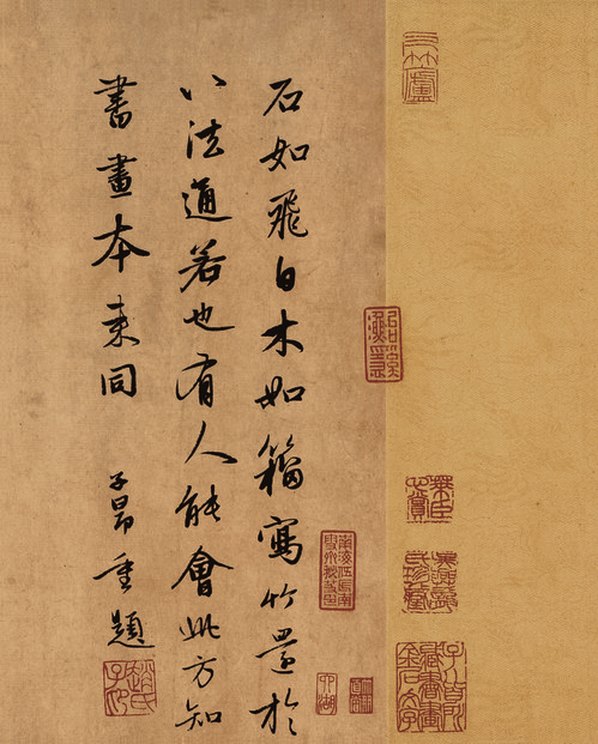 石如飛白木如籀寫竹還於
八法通若也有人能會此方知
書畫本來同
子昂重題
趙氏子昂